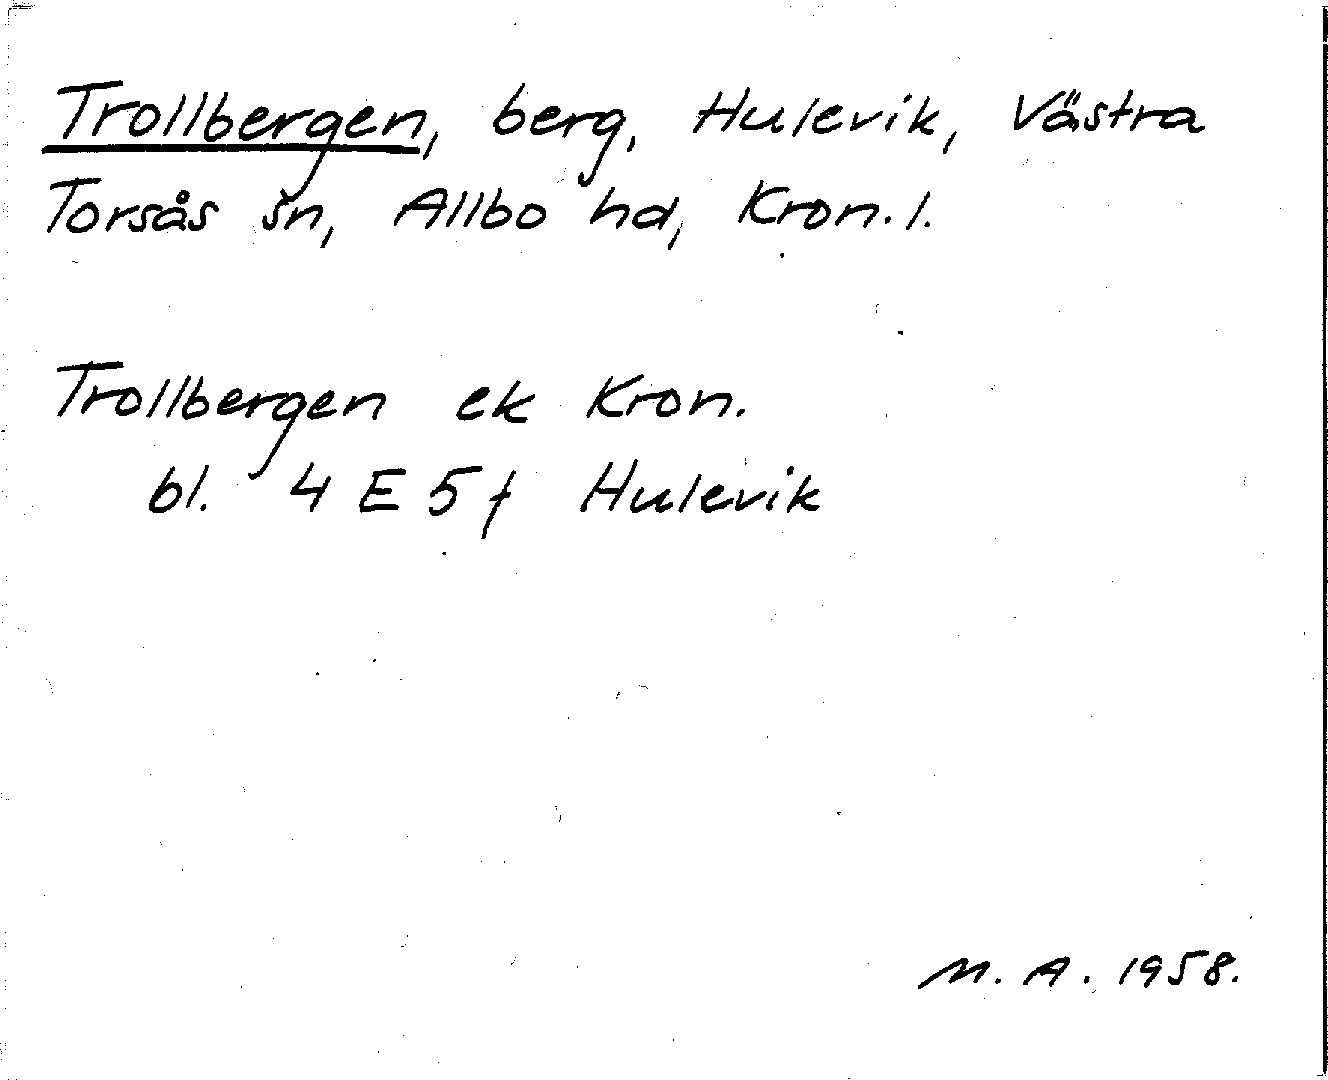 Trollbergen, berg, Hulevik, Västra
Torsås sn, Allbo hd, Kron. l.
Trollbergen ek Kron.
bl. 4 E 5 f Hulevik
M. A. 1958.